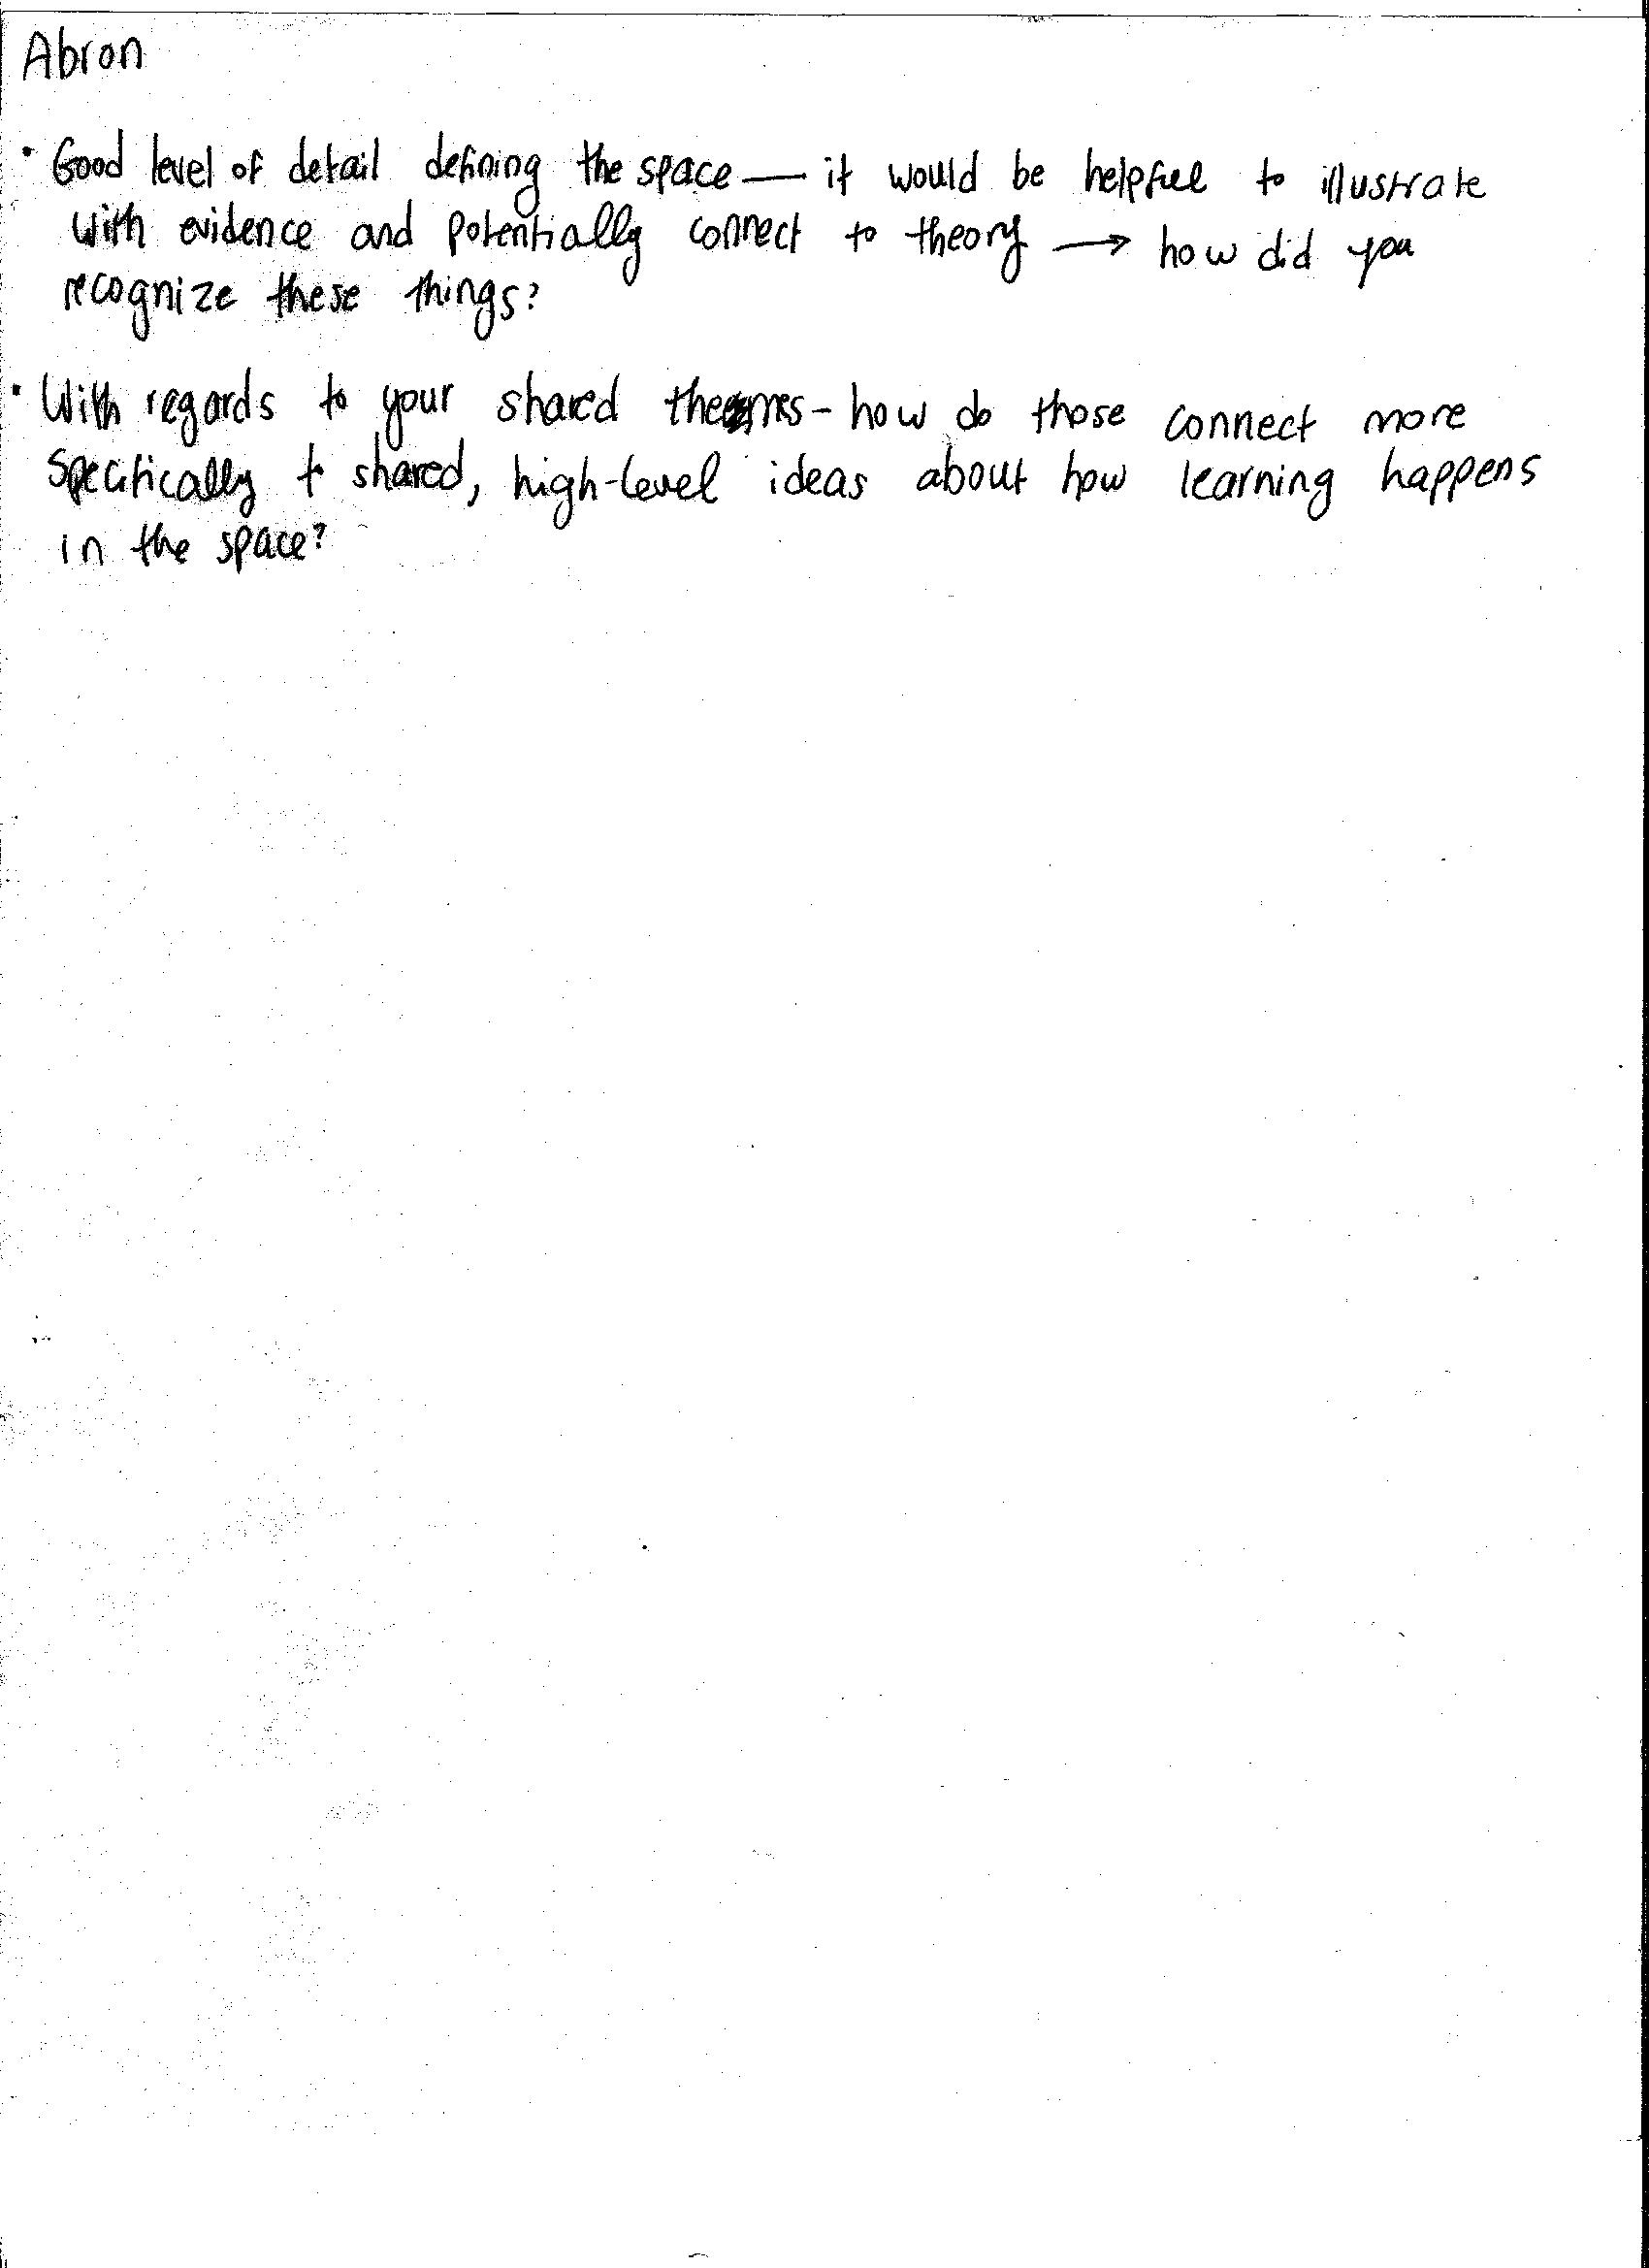 Abron
• Good level of detail defining the space — it would be helpful to illustrate
with evidence and potentially connect to theory → how did you
recognize these things?
• With regards to your shared themes - how do those connect more
specifically to shared, high-level ideas about how learning happens
in the space?